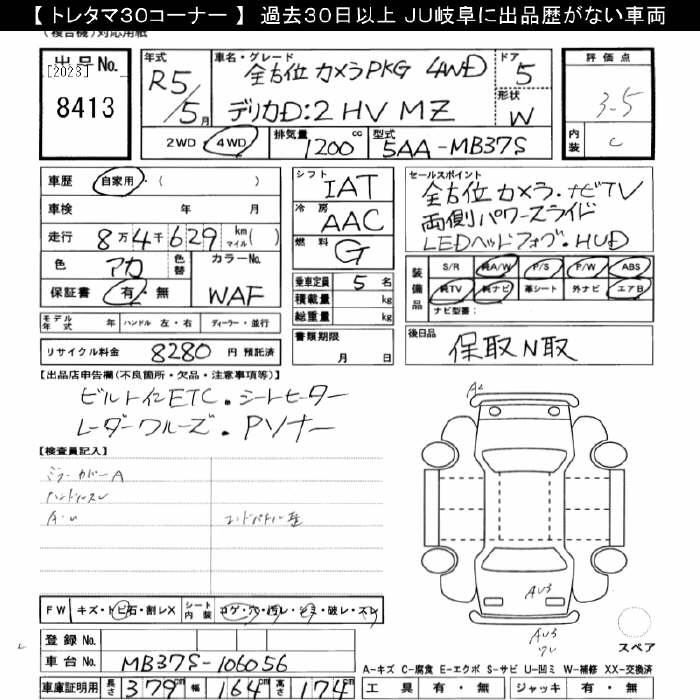 【トレタマ30コーナー】 過去30日以上 JU岐阜に出品歴がない車両
(複合機)対応用紙
出品No.
[2023]
8413
年式 R5/5月
車名・グレード
全方位カメラPKG 4WD
デリカD:2 HV MZ
ドア 5
形状 W
2WD 4WD
排気量 1200 cc
型式 5AA-MB37S
評価点
3.5
内装 C
車歴 自家用・( )
車検 年 月
走行 8万4千629 km マイル( )
色 アカ 色替 カラーNo. WAF
保証書 有・無
モデル年式 年 ハンドル 左・右 ディーラー・並行
リサイクル料金 8280 円 預託済
シフト IAT
冷房 AAC
燃料 G
乗車定員 5 名
積載量 kg
総重量 kg
書類期限
月 日
セールスポイント
全方位カメラ・ナビTV
両側パワースライド
LEDヘッドフォグ・HUD
装備品
S/R 純A/W P/S P/W ABS
純TV 純ナビ 革シート 外ナビ エアB
ナビ型番:
後日品
保取N取
【出品店申告欄(不良箇所・欠品・注意事項等)】
ビルトインETC・シートヒーター
レーダークルーズ・Pソナー
【検査員記入】
ミラーカバーA
ハンドルスレ
A・U
FW キズ・トビ石・割レX シート内装 コゲ・穴・汚レ・シミ・破レ・スレ
登録No.
車台No. MB37S-106056
車庫証明用 長さ 379cm 幅 164cm 高さ 174cm
A2
AU3
AU3
スペア
A-キズ C-腐食 E-エクボ S-サビ U-凹ミ W-補修 XX-交換済
工具 有・無 ジャッキ 有・無